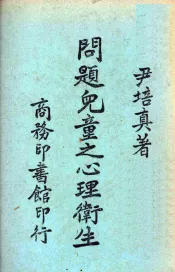 尹培真著
問題兒童之心理衛生
商務印書館印行